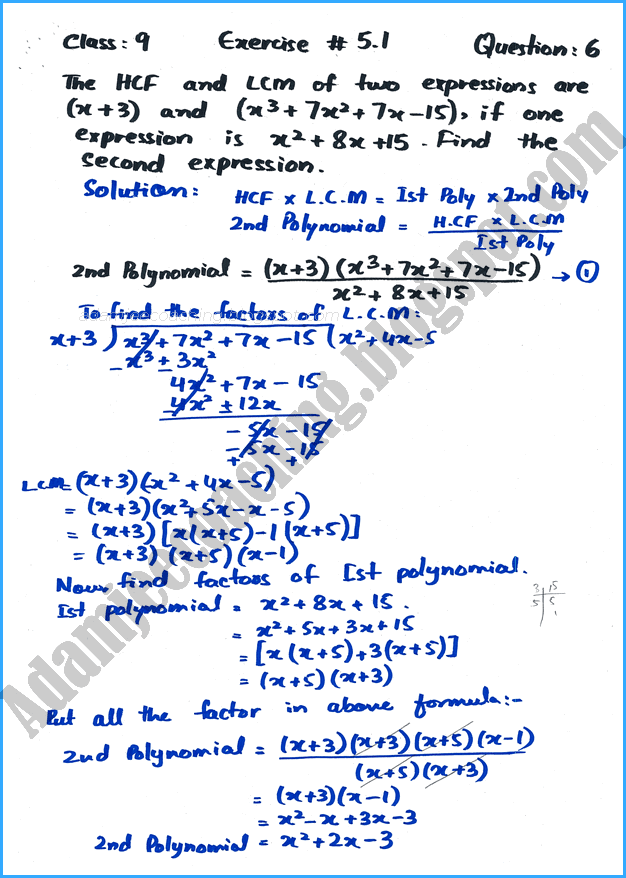 Class: 9 Exercise # 5.1 Question: 6
The HCF and LCM of two expressions are
(x+3) and (x³+7x²+7x-15), if one
expression is x²+8x+15. Find the
second expression.
Solution: HCF x L.C.M = Ist Poly x 2nd Poly
2nd Polynomial = H.CF x L.C.M
Ist Poly
2nd Polynomial = (x+3)(x³+7x²+7x-15) → ①
x²+8x+15
To find the factors of L.C.M:
x+3 ) x³+7x²+7x-15 ( x²+4x-5
-x³ ± 3x²
4x²+7x-15
-4x² ± 12x
-5x-15
-5x-15
+ +
LCM= (x+3)(x²+4x-5)
= (x+3)(x²+5x-x-5)
= (x+3)[x(x+5)-1(x+5)]
= (x+3)(x+5)(x-1)
Now find factors of Ist polynomial.
Ist polynomial = x²+8x+15.
3 15
5 5
1
= x²+5x+3x+15
= [x(x+5)+3(x+5)]
= (x+5)(x+3)
Put all the factor in above formula:-
2nd Polynomial = (x+3)(x+3)(x+5)(x-1)
(x+5)(x+3)
= (x+3)(x-1)
= x²-x+3x-3
2nd Polynomial = x²+2x-3
Adamjeecoaching.blogspot.com